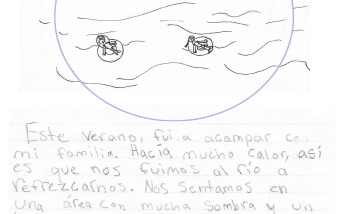 Este verano, fui a acampar con
mi familia. Hacía mucho calor, así
es que nos fuimos al río a
refrezcarnos. Nos sentamos en
una área con mucha sombra y un